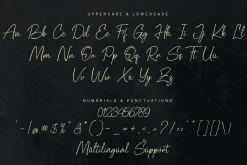 UPPERCASE & LOWERCASE
Aa Bb Cc Dd Ee Ff Gg Hh Ii Jj Kk Ll
Mm Nn Oo Pp Qq Rr Ss Tt Uu
Vv Ww Xx Yy Zz
NUMERIALS & PUNCTUATIONS
0123456789
Multilingual Support